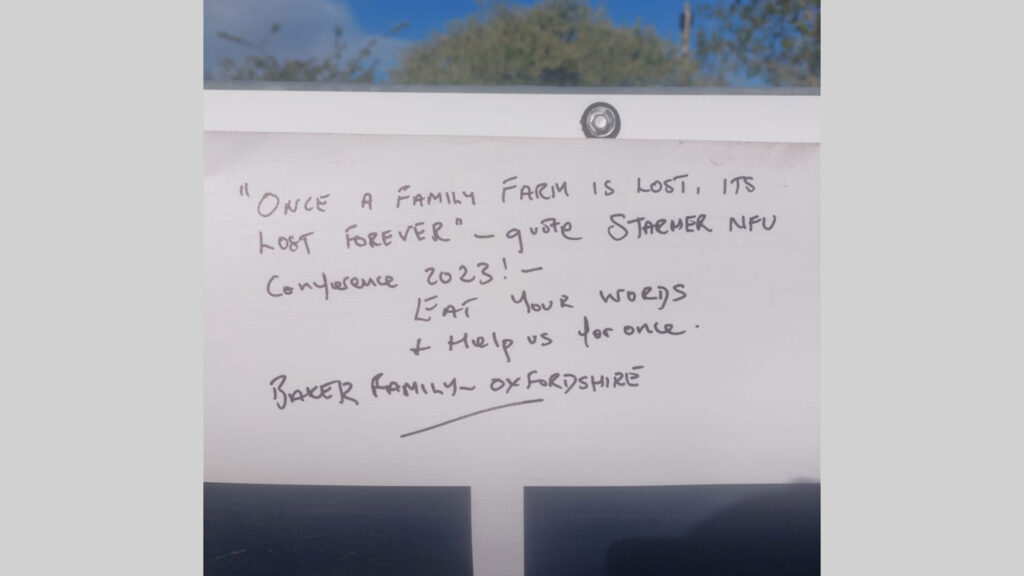 "ONCE A FAMILY FARM IS LOST, ITS
LOST FOREVER" – quote STARMER NFU
Conference 2023! –
EAT YOUR WORDS
+ Help us for once.
BAKER FAMILY – OXFORDSHIRE